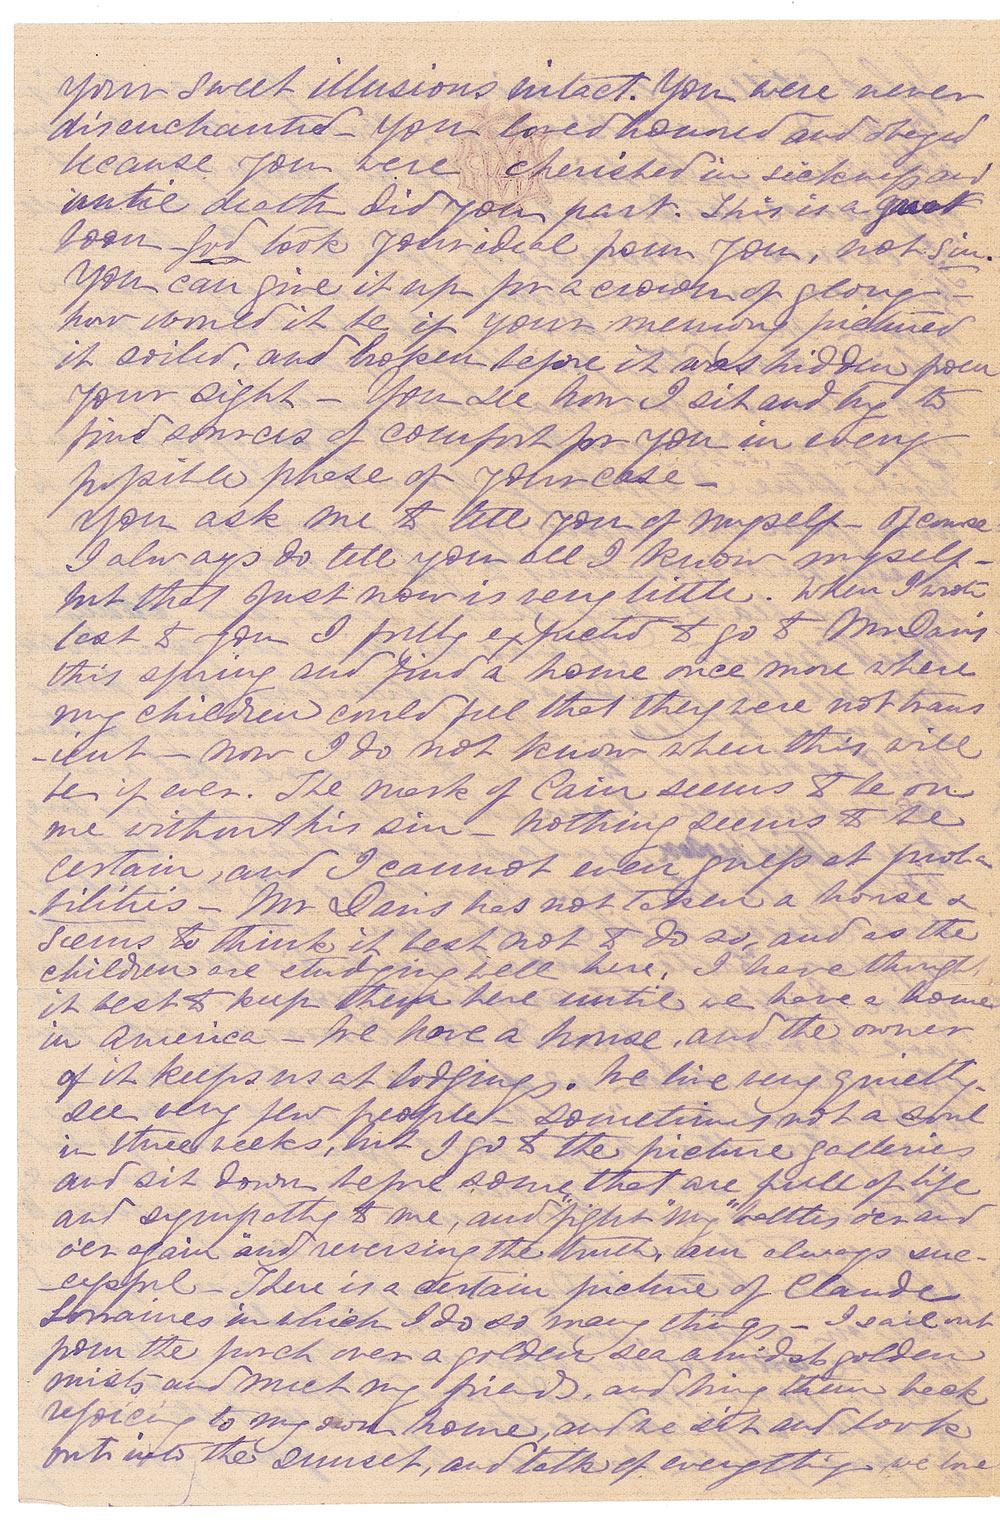 your sweet illusions intact. You were never
disenchanted - you loved honored and obeyed
because you were cherished in sickness and
until death did you part. This is a great
boon - God took your ideal from you, not sin.
You can give it up for a crown of glory -
how would it be if your memory pictured
it soiled, and broken before it was hidden from
your sight - You see how I sit and try to
find sources of comfort for you in every
possible phase of your case -
You ask me to tell you of myself - Of course
I always do tell you all I know myself -
but that just now is very little. When I wrote
last to you I fully expected to go to Mr Davis
this spring and find a home once more where
my children could feel that they were not trans
-ient - now I do not know when this will
be if ever. The mark of Cain seems to be on
me without his sin - nothing seems to be
certain, and I cannot even guess at proba
-bilities - Mr Davis has not taken a house &
seems to think it best not to do so, and as the
children are studying well here, I have thought
it best to keep them here until we have a home
in America - We have a house, and the owner
of it keeps us at lodgings. We live very quietly -
see very few people - sometimes not a soul
in three weeks, but I go to the picture galleries
and sit down before some that are full of life
and sympathy to me, and "fight "my" battles oer and
oer again" and reversing the truth, am always suc-
-cessful - There is a certain picture of Claude
Lorraines in which I do so many things - I sail out
from the porch over a golden sea amidst golden
mists and meet my friends, and bring them back
rejoicing to my own home, and we sit and look
out into the sunset, and talk of everything we love